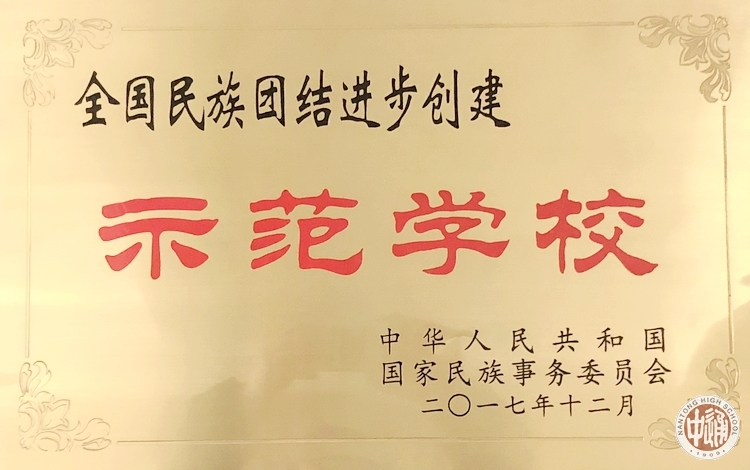 全国民族团结进步创建
示范学校
中华人民共和国
国家民族事务委员会
二〇一七年十二月
NANTONG HIGH SCHOOL
通中
1909